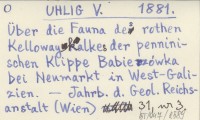 O UHLIG V. 1881.
Über die Fauna des rothen
Kelloway-Kalkes der pennini-
schen Klippe Babierzówka
bei Neumarkt in West-Gali-
zien. — Jahrb. d. Geol. Reichs-
anstalt (Wien) 31, nr 3,